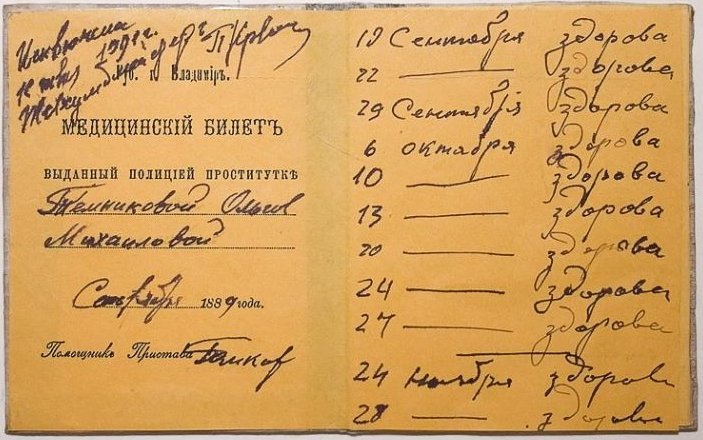 Губ. г. Владиміръ.
МЕДИЦИНСКІЙ БИЛЕТЪ
ВЫДАННЫЙ ПОЛИЦІЕЙ ПРОСТИТУТКѢ
Темниковой Ольгѣ
Михаиловой
Сентября 1889 года.
Помощникъ Пристава
19 Сентября здорова
22 — здорова
29 Сентября здорова
6 октября здорова
10 — здорова
13 — здорова
20 — здорова
24 — здорова
27 — здорова
24 ноября здорова
28 — здорова